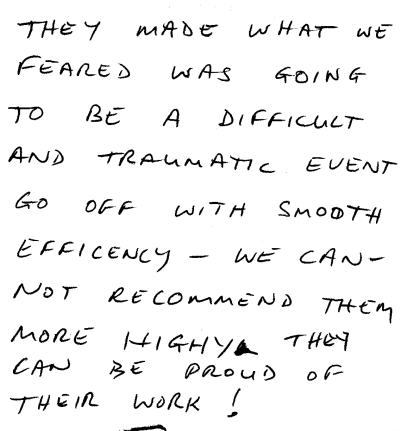 THEY MADE WHAT WE
FEARED WAS GOING
TO BE A DIFFICULT
AND TRAUMATIC EVENT
GO OFF WITH SMOOTH
EFFICENCY – WE CAN-
NOT RECOMMEND THEM
MORE HIGHY. THEY
CAN BE PROUD OF
THEIR WORK!